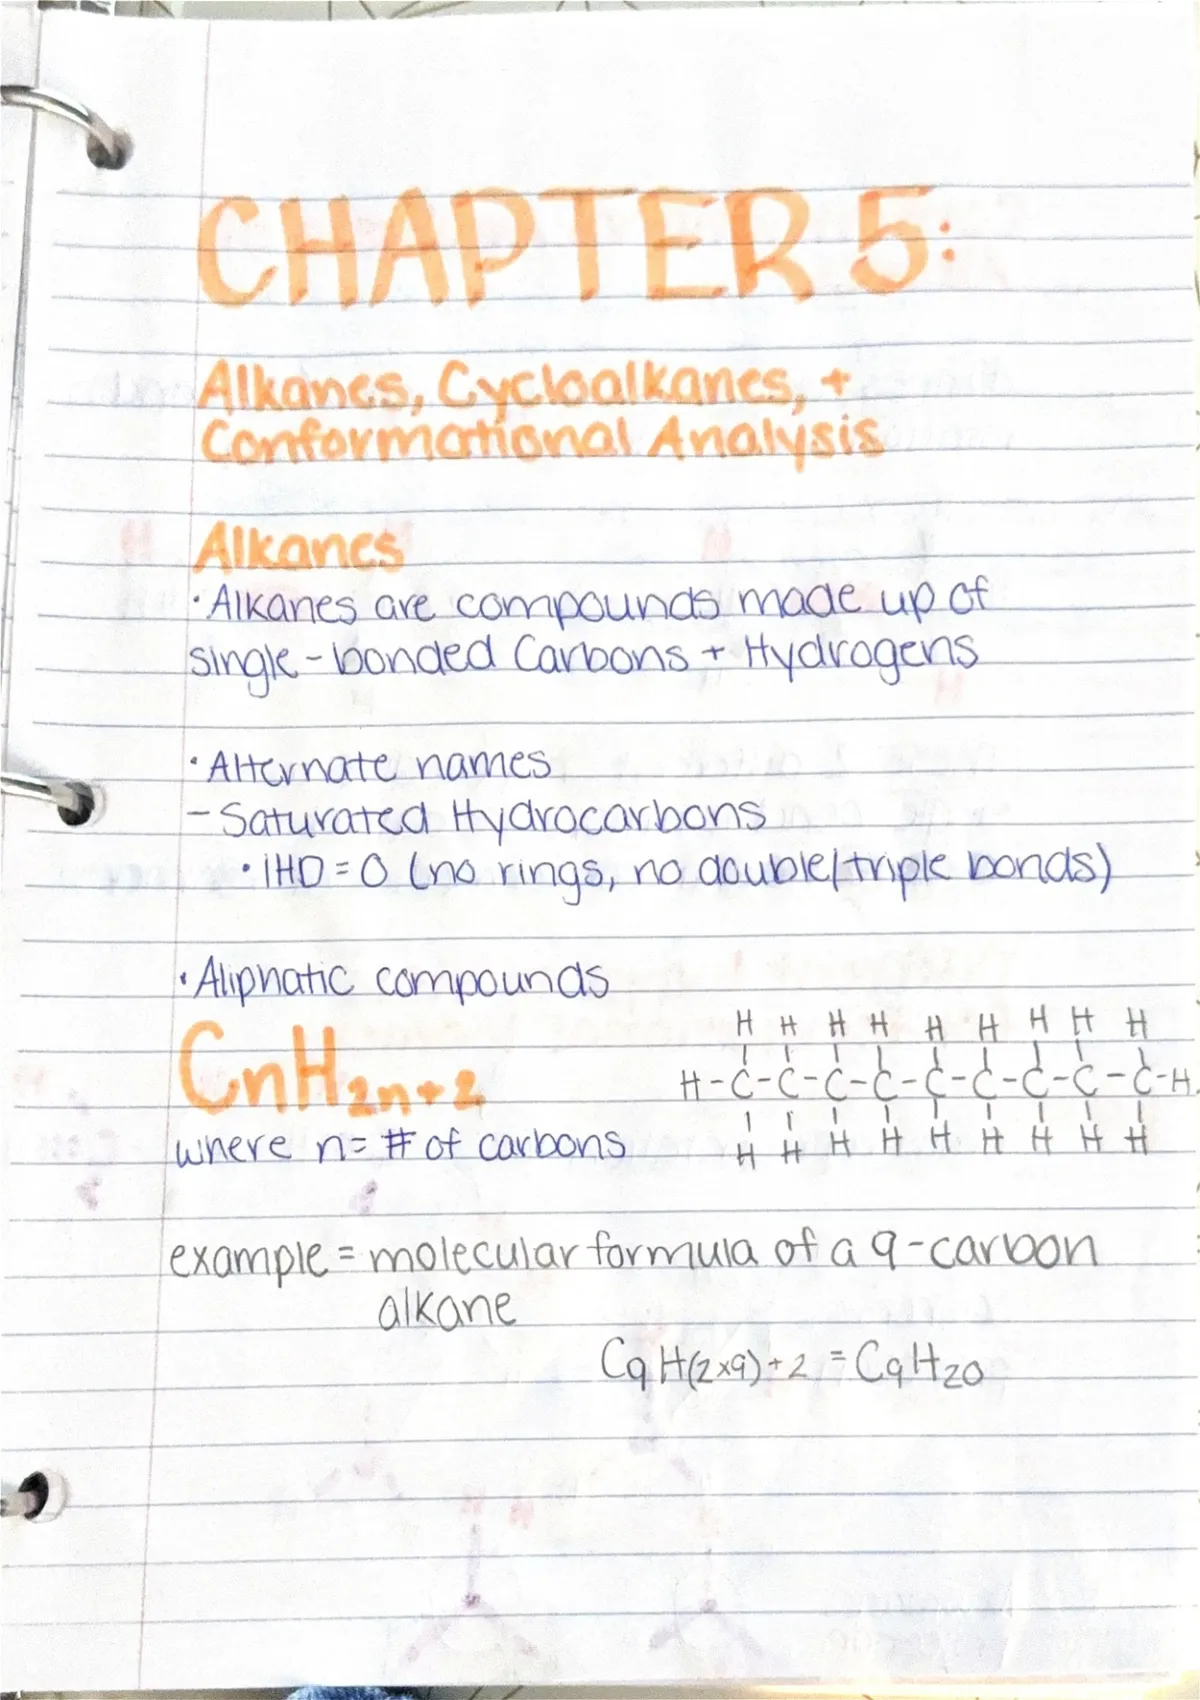 CHAPTER 5:
Alkanes, Cycloalkanes, +
Conformational Analysis
Alkanes
· Alkanes are compounds made up of
single-bonded Carbons + Hydrogens
· Alternate names
- Saturated Hydrocarbons
· IHD = 0 (no rings, no double/triple bonds)
· Aliphatic compounds
CnH2n+2
where n= # of carbons
H H H H H H H H H
H-C-C-C-C-C-C-C-C-C-H
H H H H H H H H H
example = molecular formula of a 9-carbon
alkane
C9H(2x9)+2 = C9H20